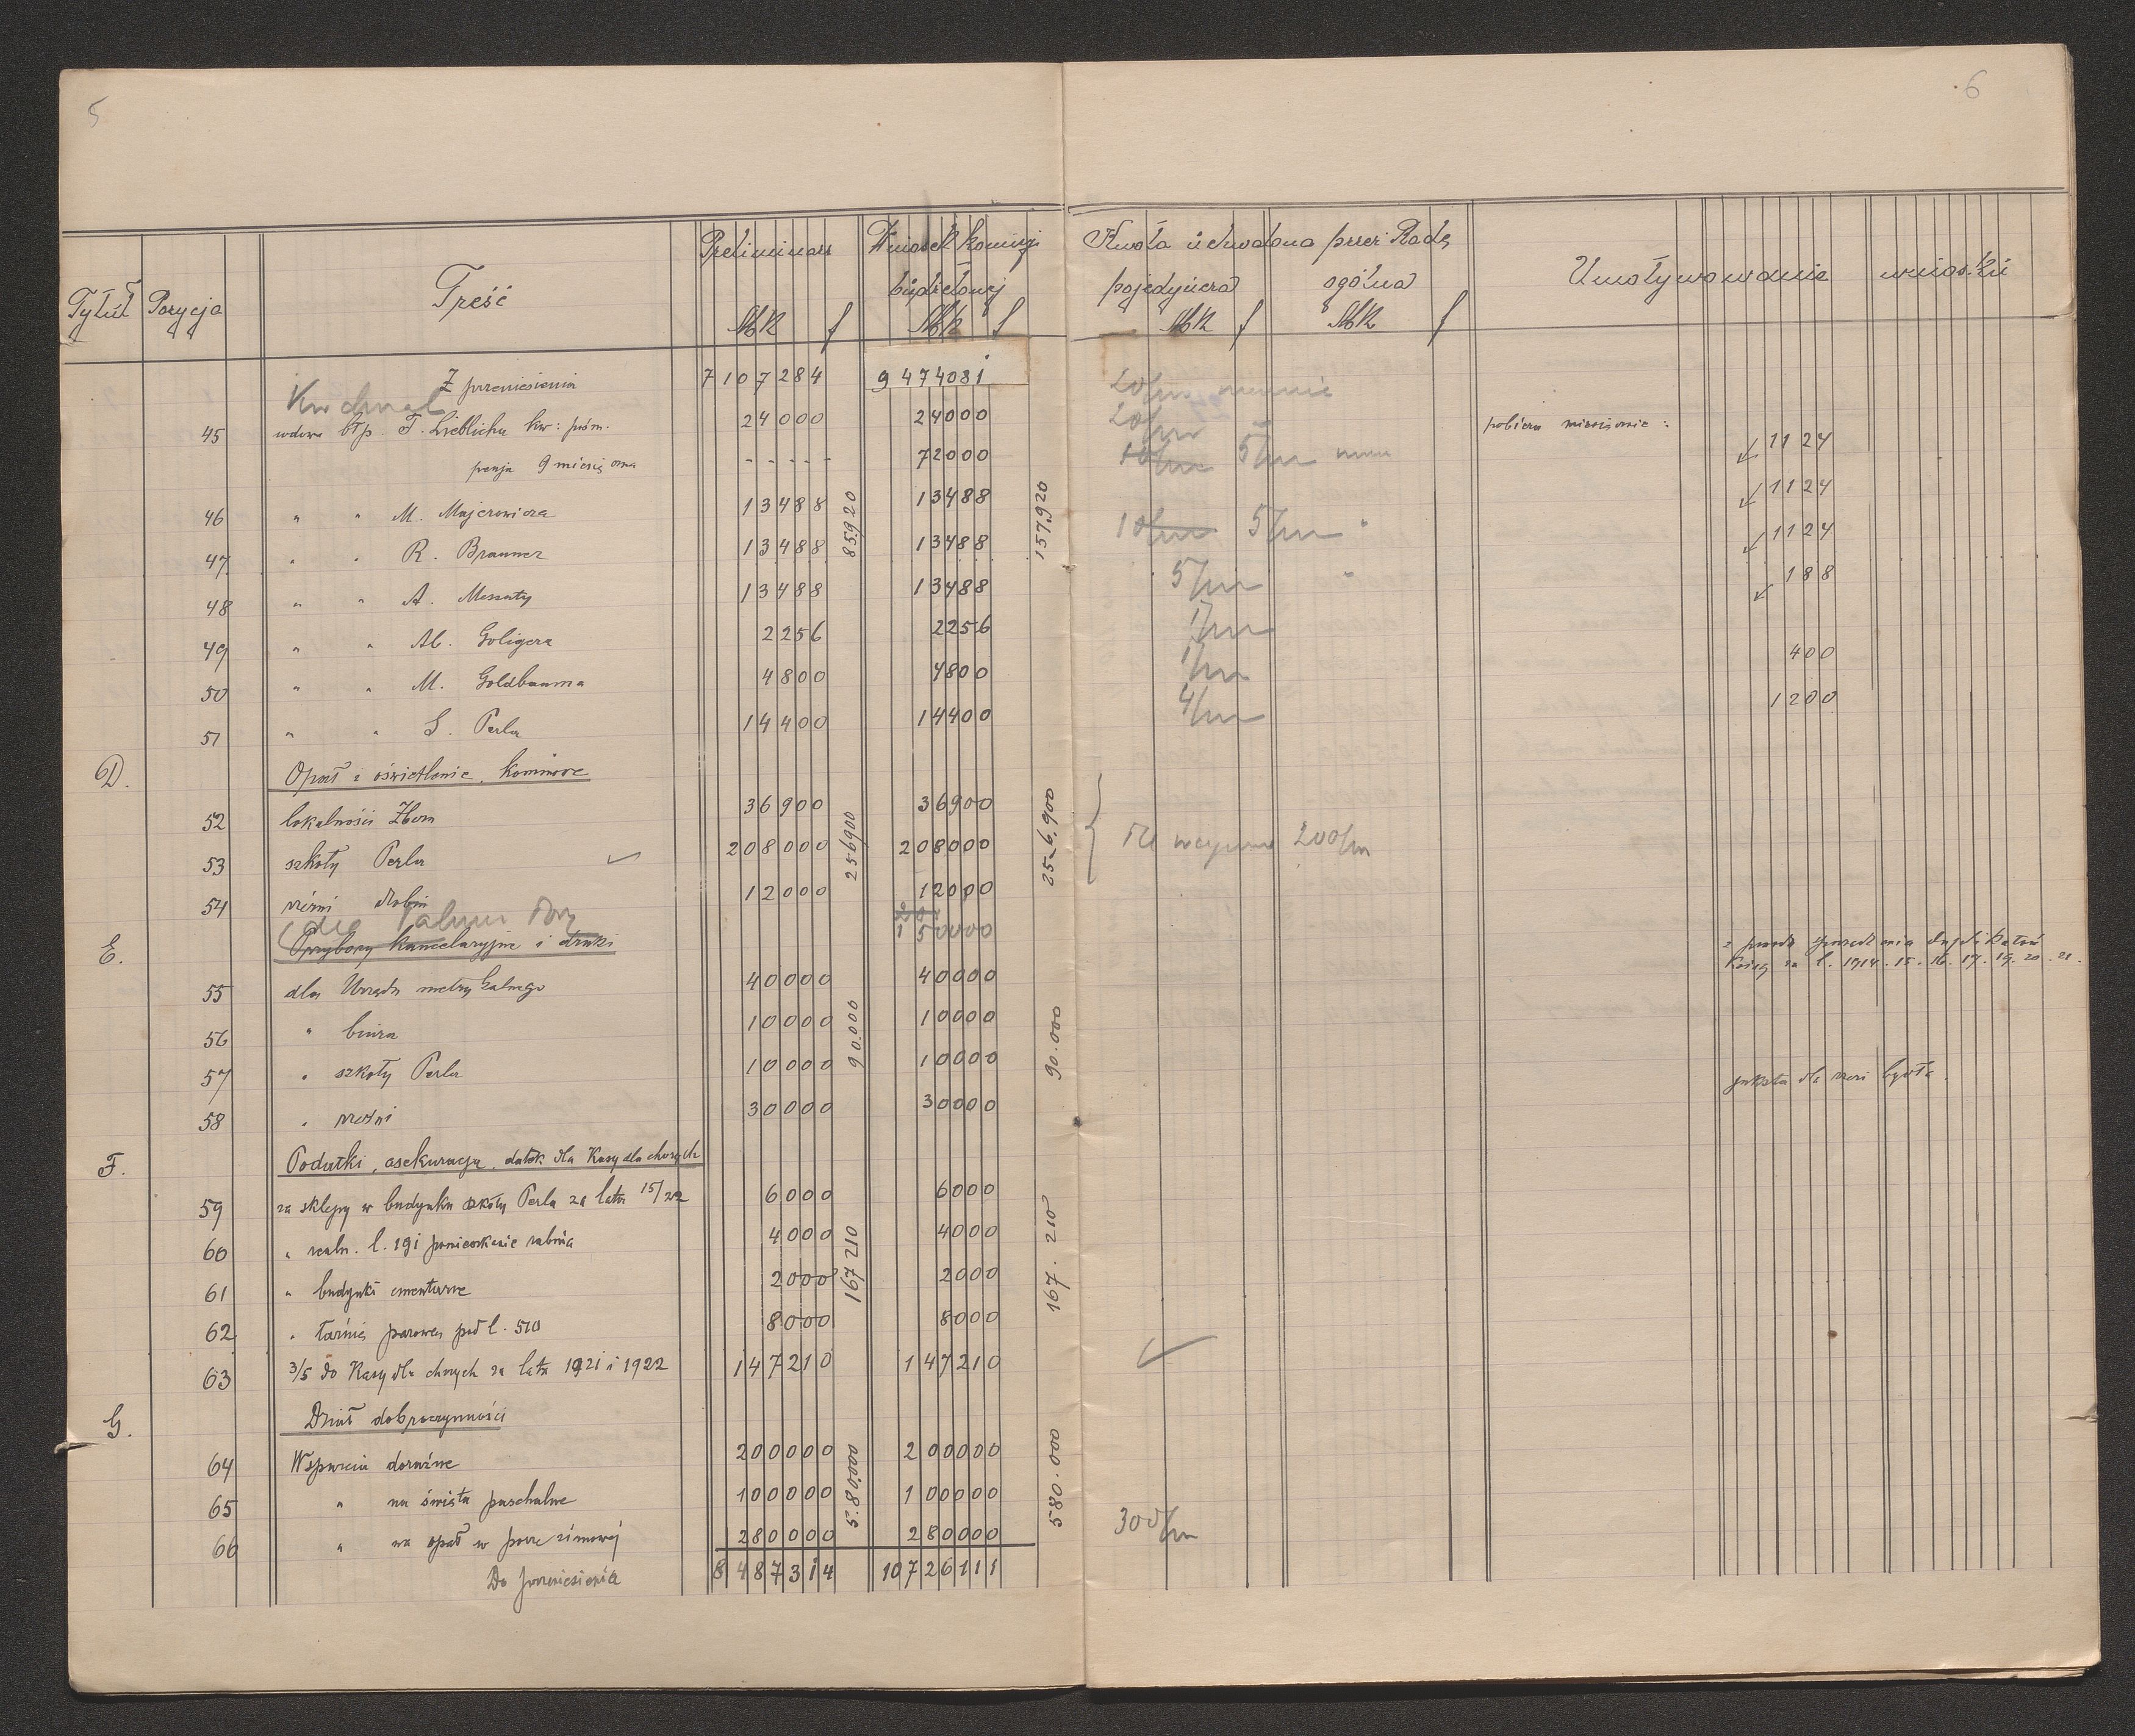 5
6
Tytuł Pozycja Treść Preliminarz Wniosek komisji budżetowej Kwota uchwalona przez Radę Umotywowanie wniosku
pojedyńcza ogólna
Mk f Mk f Mk f Mk f
Z przeniesienia 7107284 9474031
20/m
45 wdowa błp. F. Lieblicha kw: piśm. 24000 24000 20/m pobiera miesięcznie: 1124
pensja 9 miesięczna - - - - - 72000 5/m
46 " " M. Majerowicza 13488 13488 1124
85920 157.920
47 " " R. Braunera 13488 13488 10/m 5/m " 1124
48 " " A. Messuty 13488 13488 5/m " 188
49 " " M. Goligera 2256 2256 1/m
50 " " M. Goldbauma 4800 4800 1/m 400
51 " " S. Perla 14400 14400 4/m 1200
D. Opał i oświetlenie, kominiarz
52 lokalności Zboru 36900 36900
256900 256,900
53 szkoły Perla 208000 208000 200/m
54 rzeźni drobiu 12000 12000
E. Przybory kancelaryjne i druki 150000
z powodu sporządzenia duplikatów
ksiąg za l. 1914. 15. 16. 17. 19. 20. 21.
55 dla Urzędu metrykalnego 40000 40000
56 " biura 10000 10000
90.000 90.000
57 " szkoły Perla 10000 10000
58 " rzeźni 30000 30000
F. Podatki, asekuracja, datek dla Kasy dla chorych
59 za sklepy w budynku szkoły Perla za lata 15/22 6000 6000
60 " realn. l. 191 pomieszkanie rabina 4000 4000
167210 167.210
61 " budynki cmentarne 2000 2000
62 " łaźnię parową pod l. 510 8000 8000
63 3/5 do Kasy dla chorych za lata 1921 i 1922 147210 147210
G. Dział dobroczynności
64 Wsparcia doraźne 200000 200000
580.000 580.000
65 " na święta paschalne 100000 100000
66 " na opał w porze zimowej 280000 280000 300/m
Do przeniesienia 8487314 10726111